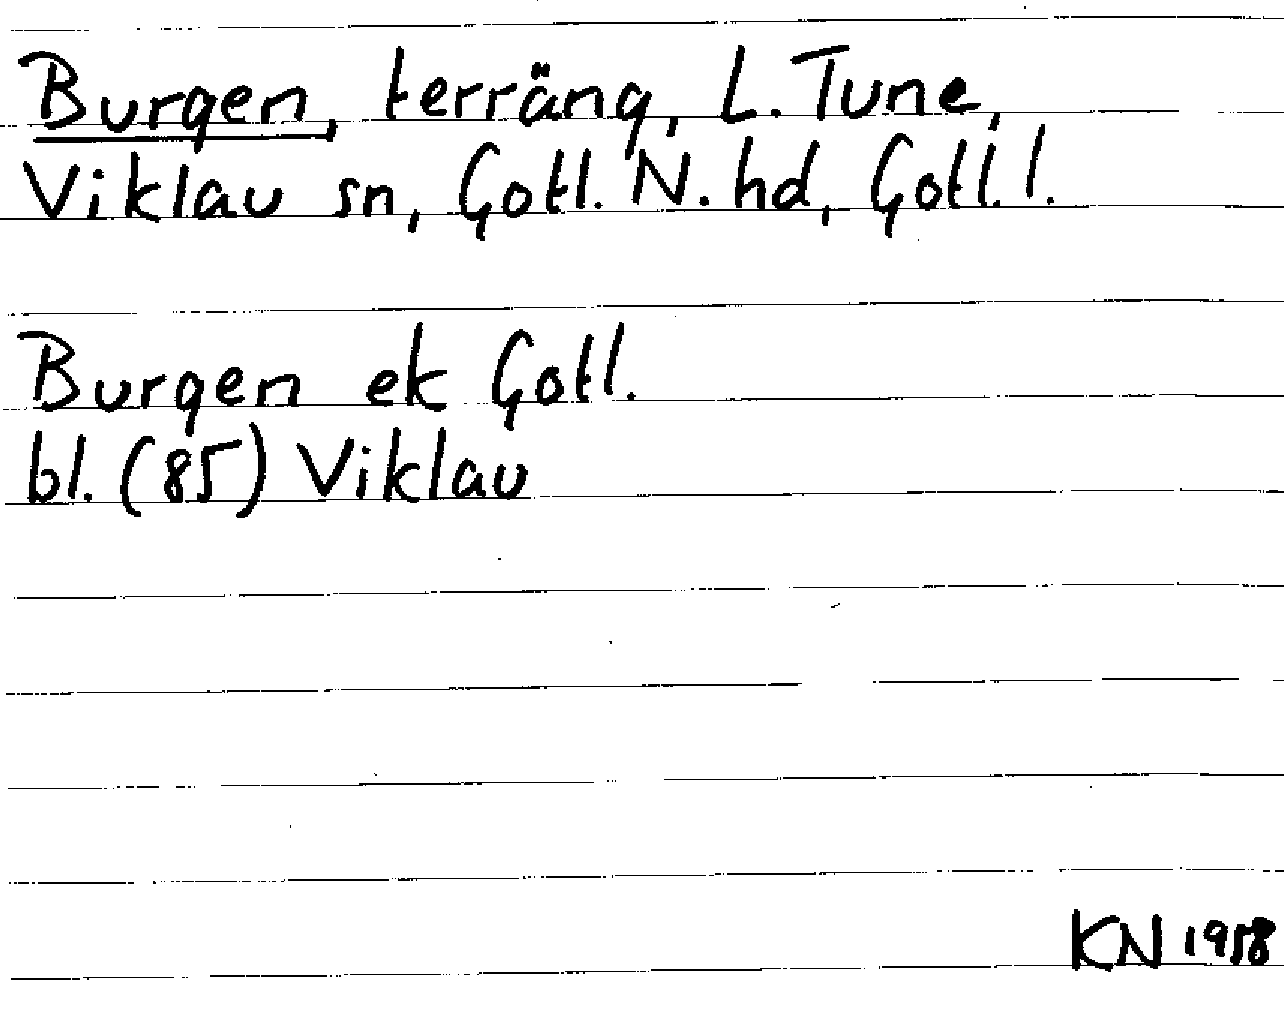 Burgen, terräng, L. Tune,
Viklau sn, Gotl. N. hd, Gotl. l.
Burgen ek Gotl.
bl. (85) Viklau
KN 1958